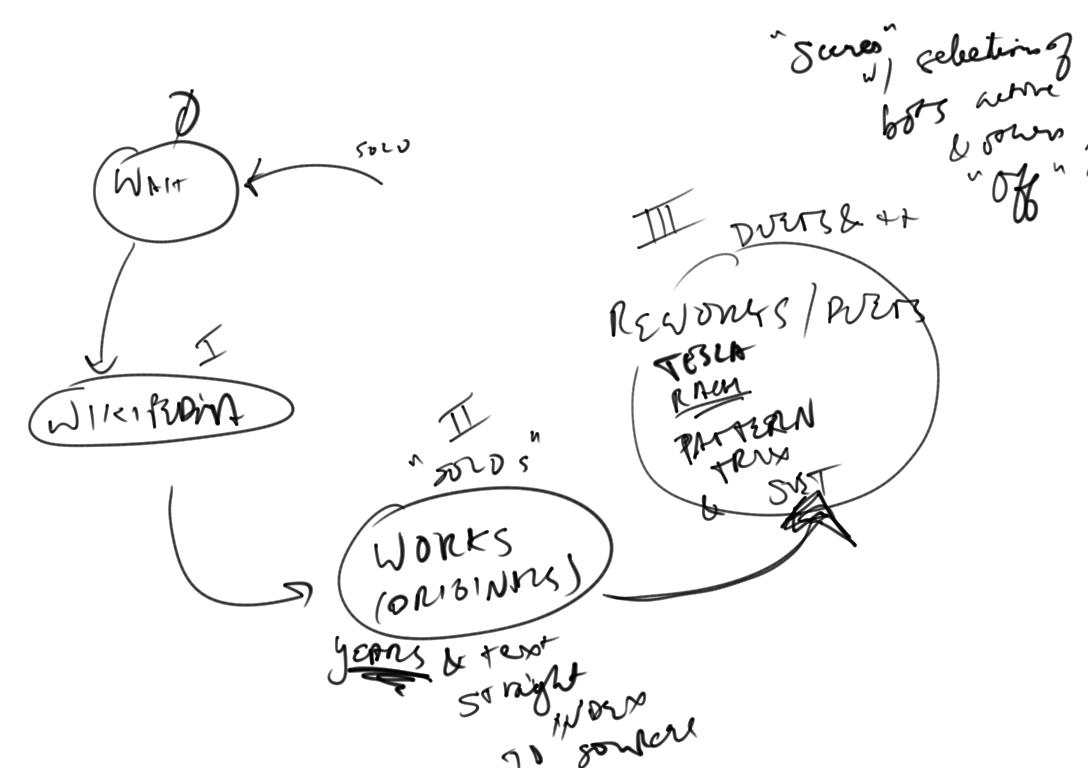 "Scenes"
w/ selection of
bots active
& others
"Off"
Ø
WAIT
SOLO
I
WIKIPEDIA
II
"SOLOS"
WORKS
(ORIGINALS)
YEARS & text
straight
INDEX
TO source
III
DUETS & ++
REWORKS / DUETS
TESLA
RACH
PATTERN
TRUX